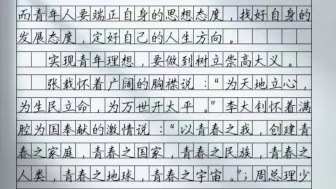 而青年人要端正自身的思想态度，找好自身的
发展态度，定好自己的人生方向。
实现青年理想，要做到树立崇高大义。
张载怀着广阔的胸襟说：“为天地立心，
为生民立命，为万世开太平。”李大钊怀着满
腔为国奉献的激情说：“以青春之我，创建青
春之家庭，青春之国家，青春之民族，青春之
人类，青春之地球，青春之宇宙。”；周总理少